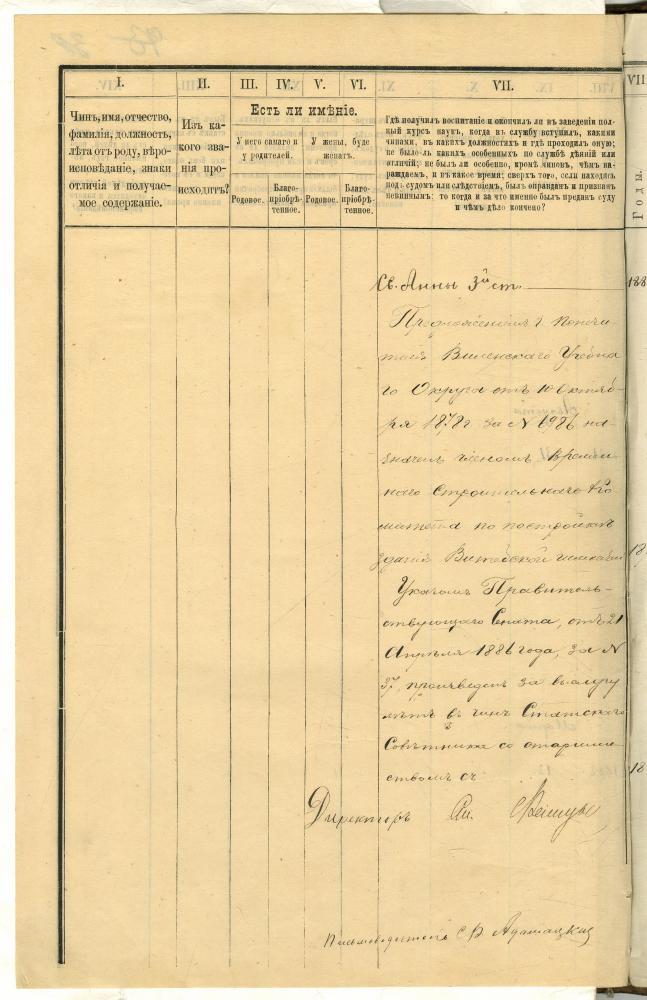 I.
II.
III.
IV.
V.
VI.
VII.
VII
Чинъ, имя, отчество,
фамилія, должность,
лѣта отъ роду, вѣро-
исповѣданіе, знаки
отличія и получае-
мое содержаніе.
Изъ ка-
кого зва-
нія про-
исходитъ?
Есть ли имѣніе.
У него самаго и
у родителей.
У жены, буде
женатъ.
Родовое.
Благо-
пріобрѣ-
тенное.
Родовое.
Благо-
пріобрѣ-
тенное.
Гдѣ получилъ воспитаніе и окончилъ ли въ заведеніи пол-
ный курсъ наукъ, когда въ службу вступилъ, какими
чинами, въ какихъ должностяхъ и гдѣ проходилъ оную;
не было ль какихъ особенныхъ по службѣ дѣяній или
отличій; не былъ ли особенно, кромѣ чиновъ, чѣмъ на-
граждаемъ, и въ какое время; сверхъ того, если находясь
подъ судомъ или слѣдствіемъ, былъ оправданъ и признанъ
невиннымъ: то когда и за что именно былъ преданъ суду
и чѣмъ дѣло кончено?
Годы.
Св. Анны 3й ст.
188
Предложеніемъ г. Попечи-
теля Виленскаго Учебна
го Округа отъ 10 Октяб-
ря 1878г. за № 6986 на-
значенъ членомъ Времен-
наго Строительнаго Ко-
митета по постройкѣ
зданія Витебской гимназіи
18
Указомъ Правитель-
ствующаго Сената, отъ 21
Апрѣля 1886 года, за №
37, произведенъ за выслугу
лѣтъ въ чинъ Статскаго
Совѣтника со старшин-
18
ствомъ съ
Директоръ
Письмоводитель